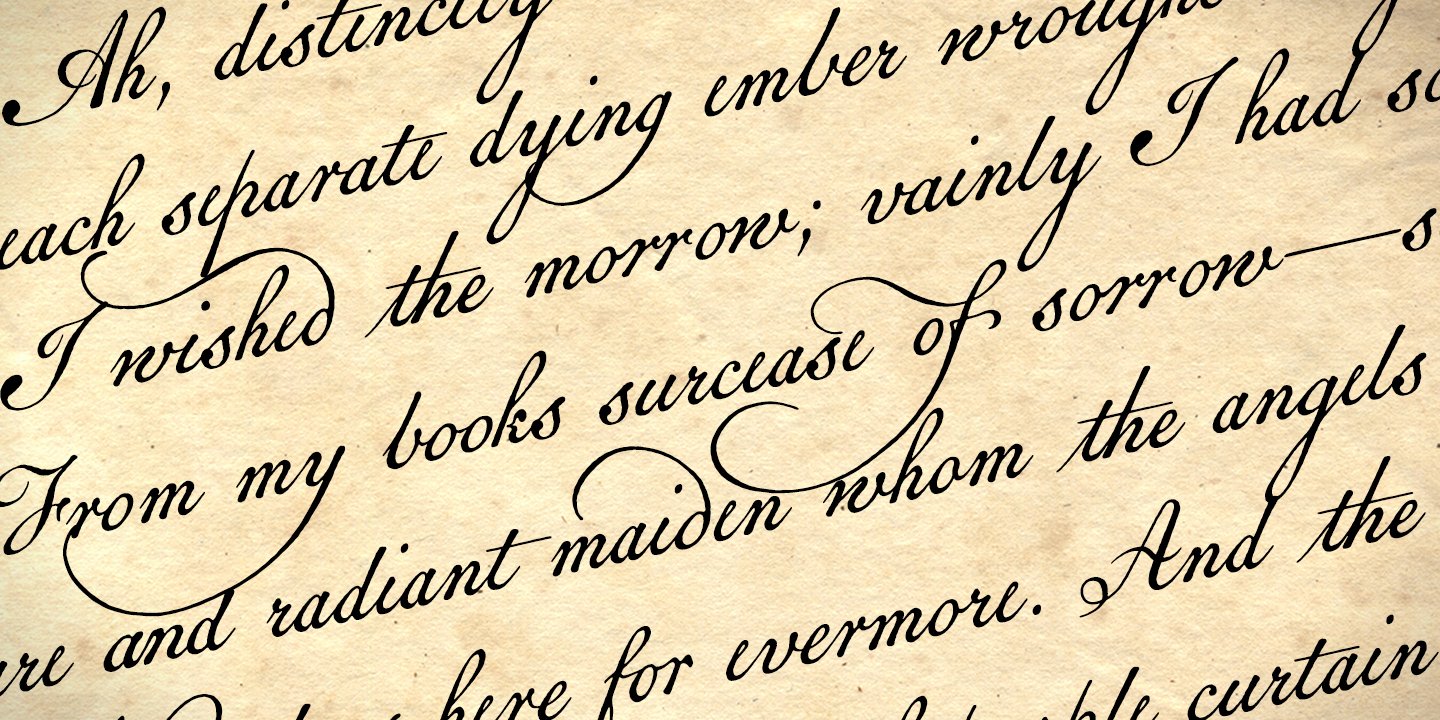 Ah, distinctly
each separate dying ember wrought
I wished the morrow; vainly I had
From my books surcease of sorrow—
and radiant maiden whom the angels
here for evermore. And the
curtain